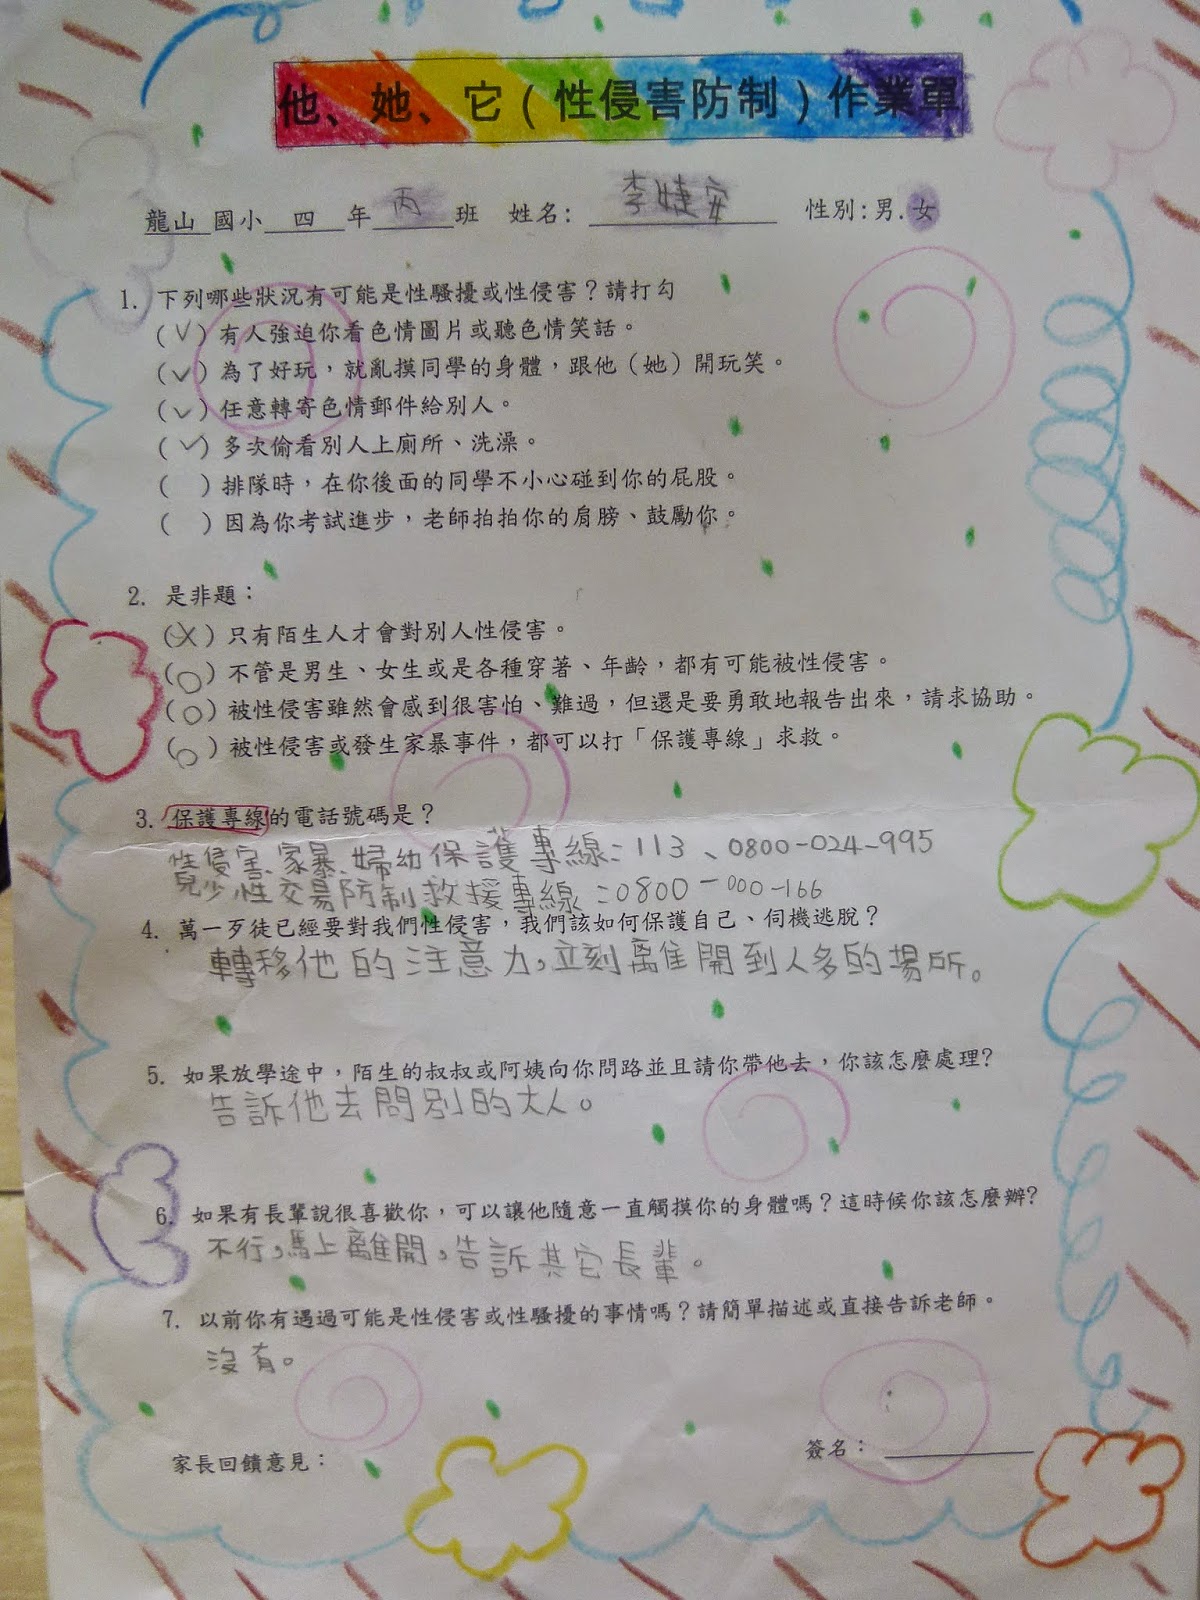 他、她、它(性侵害防制)作業單
龍山 國小 四 年 丙 班 姓名: 李婕安 性別:男.女
1. 下列哪些狀況有可能是性騷擾或性侵害?請打勾
(V) 有人強迫你看色情圖片或聽色情笑話。
(V) 為了好玩,就亂摸同學的身體,跟他(她)開玩笑。
(V) 任意轉寄色情郵件給別人。
(V) 多次偷看別人上廁所、洗澡。
( ) 排隊時,在你後面的同學不小心碰到你的屁股。
( ) 因為你考試進步,老師拍拍你的肩膀、鼓勵你。
2. 是非題:
(X) 只有陌生人才會對別人性侵害。
(O) 不管是男生、女生或是各種穿著、年齡,都有可能被性侵害。
(O) 被性侵害雖然會感到很害怕、難過,但還是要勇敢地報告出來,請求協助。
(O) 被性侵害或發生家暴事件,都可以打「保護專線」求救。
3. 保護專線的電話號碼是?
性侵害、家暴、婦幼保護專線:113、0800-024-995
兒少性交易防制救援專線:0800-000-166
4. 萬一歹徒已經要對我們性侵害,我們該如何保護自己、伺機逃脫?
轉移他的注意力,立刻離開到人多的場所。
5. 如果放學途中,陌生的叔叔或阿姨向你問路並且請你帶他去,你該怎麼處理?
告訴他去問別的大人。
6. 如果有長輩說很喜歡你,可以讓他隨意一直觸摸你的身體嗎?這時候你該怎麼辦?
不行,馬上離開,告訴其它長輩。
7. 以前你有遇過可能是性侵害或性騷擾的事情嗎?請簡單描述或直接告訴老師。
沒有。
家長回饋意見: 簽名: